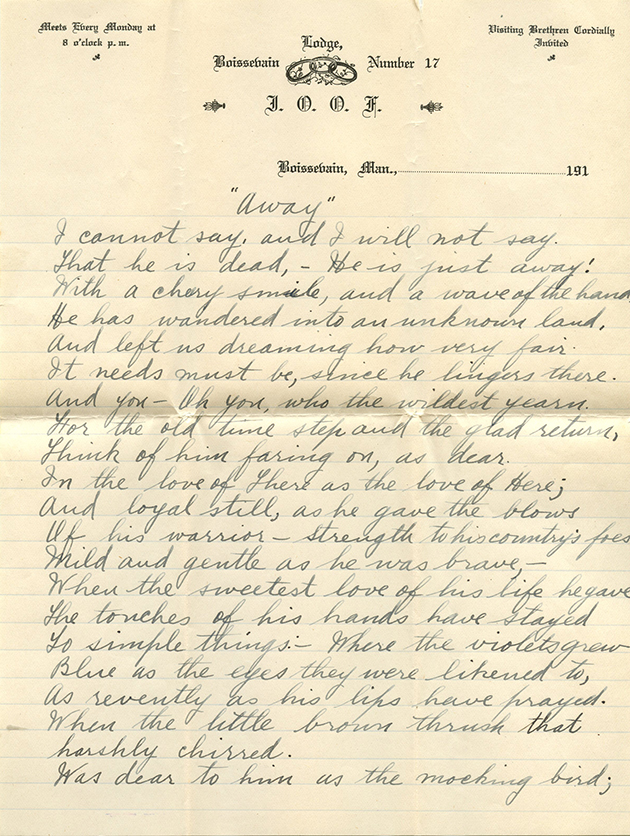 Meets Every Monday at
8 o'clock p. m.
Visiting Brethren Cordially
Invited
Lodge,
Boissevain Number 17
I. O. O. F.
Boissevain, Man., 191
"Away"
I cannot say, and I will not say.
That he is dead, - He is just away!
With a chery smile, and a wave of the hand
He has wandered into an unknown land,
And left us dreaming how very fair
It needs must be, since he lingers there.
And you - Oh you, who the wildest yearn.
For the old time step and the glad return,
Think of him faring on, as dear.
In the love of There as the love of Here;
And loyal still, as he gave the blows
Of his warrior - strength to his country's foes
Mild and gentle as he was brave, -
When the sweetest love of his life he gave
The touches of his hands have stayed
To simple things: - Where the violets grew
Blue as the eyes they were likened to,
As revently as his lips have prayed.
When the little brown thrush that
harshly chirred.
Was dear to him as the mocking bird;